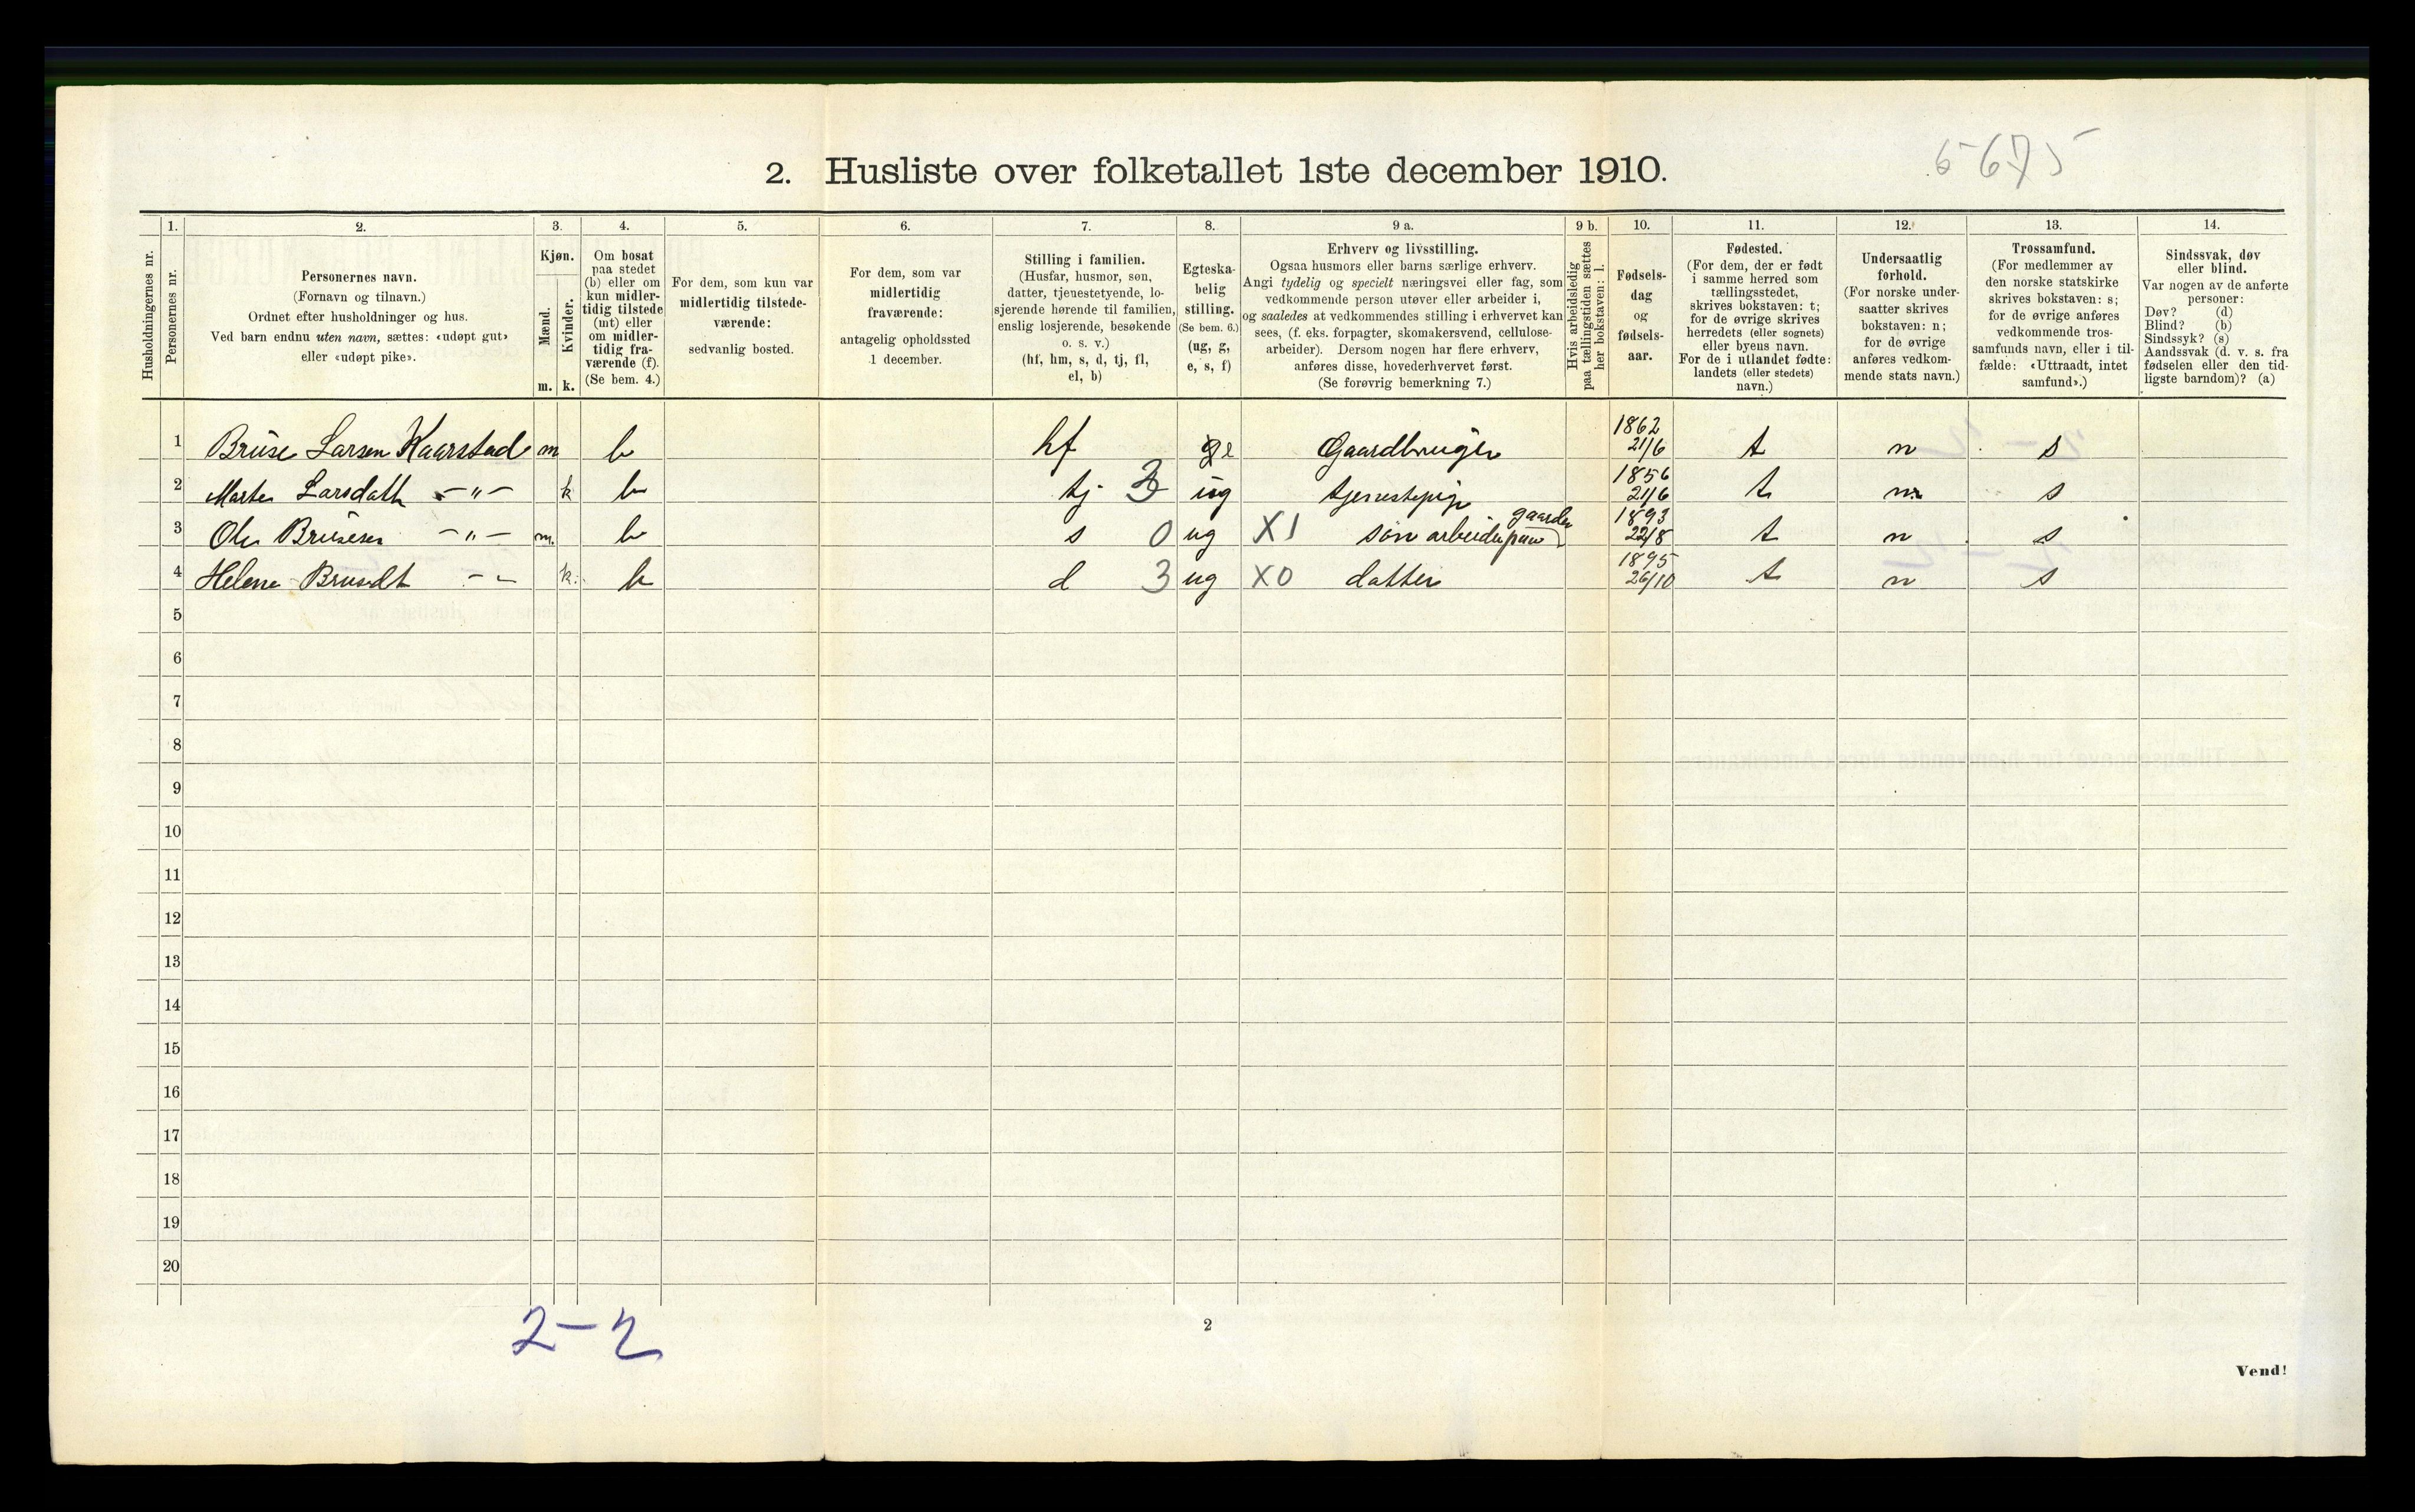 5675
2. Husliste over folketallet 1ste december 1910.
Husholdningernes nr.
1.
Personernes nr.
2.
Personernes navn.
(Fornavn og tilnavn.)
Ordnet efter husholdninger og hus.
Ved barn endnu uten navn, sættes: «udøpt gut»
eller «udøpt pike».
3.
Kjøn.
Mænd.
Kvinder.
m. k.
4.
Om bosat
paa stedet
(b) eller om
kun midler-
tidig tilstede
(mt) eller
om midler-
tidig fra-
værende (f).
(Se bem. 4.)
5.
For dem, som kun var
midlertidig tilstede-
værende:
sedvanlig bosted.
6.
For dem, som var
midlertidig
fraværende:
antagelig opholdssted
1 december.
7.
Stilling i familien.
(Husfar, husmor, søn,
datter, tjenestetyende, lo-
sjerende hørende til familien,
enslig losjerende, besøkende
o. s. v.)
(hf, hm, s, d, tj, fl,
el, b)
8.
Egteska-
belig
stilling.
(Se bem. 6.)
(ug, g,
e, s, f)
9 a.
Erhverv og livsstilling.
Ogsaa husmors eller barns særlige erhverv.
Angi tydelig og specielt næringsvei eller fag, som
vedkommende person utøver eller arbeider i,
og saaledes at vedkommendes stilling i erhvervet kan
sees, (f. eks. forpagter, skomakersvend, cellulose-
arbeider). Dersom nogen har flere erhverv,
anføres disse, hovederhvervet først.
(Se forøvrig bemerkning 7.)
9 b.
Hvis arbeidsledig
paa tællingstiden sættes
her bokstaven: l.
10.
Fødsels-
dag
og
fødsels-
aar.
11.
Fødested.
(For dem, der er født
i samme herred som
tællingsstedet,
skrives bokstaven: t;
for de øvrige skrives
herredets (eller sognets)
eller byens navn.
For de i utlandet fødte:
landets (eller stedets)
navn.)
12.
Undersaatlig
forhold.
(For norske under-
saatter skrives
bokstaven: n;
for de øvrige
anføres vedkom-
mende stats navn.)
13.
Trossamfund.
(For medlemmer av
den norske statskirke
skrives bokstaven: s;
for de øvrige anføres
vedkommende tros-
samfunds navn, eller i til-
fælde: «Uttraadt, intet
samfund».)
14.
Sindssvak, døv
eller blind.
Var nogen av de anførte
personer:
Døv? (d)
Blind? (b)
Sindssyk? (s)
Aandssvak (d. v. s. fra
fødselen eller den tid-
ligste barndom)? (a)
1 Brüse Larsen Kaarstad m b hf e Gaardbruger 1862 21/6 t n s
2 Marte Larsdatt -"- k b tj 3 ug tjenestepige 1856 21/6 t n s
3 Ole Brüsesen -"- m. b s 0 ug X1 søn arbeider paa gaarden 1893 22/8 t n s
4 Helene Brusdt -"- k. b d 3 ug X0 datter 1895 26/10 t n s
5
6
7
8
9
10
11
12
13
14
15
16
17
18
19
20
2-2
2
Vend!